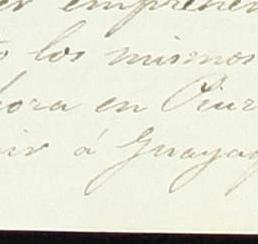 er empren
o los mismos
hora en Piur
ir á Guayaq